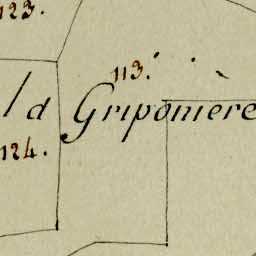 123.
113.
la Griponiere
124.